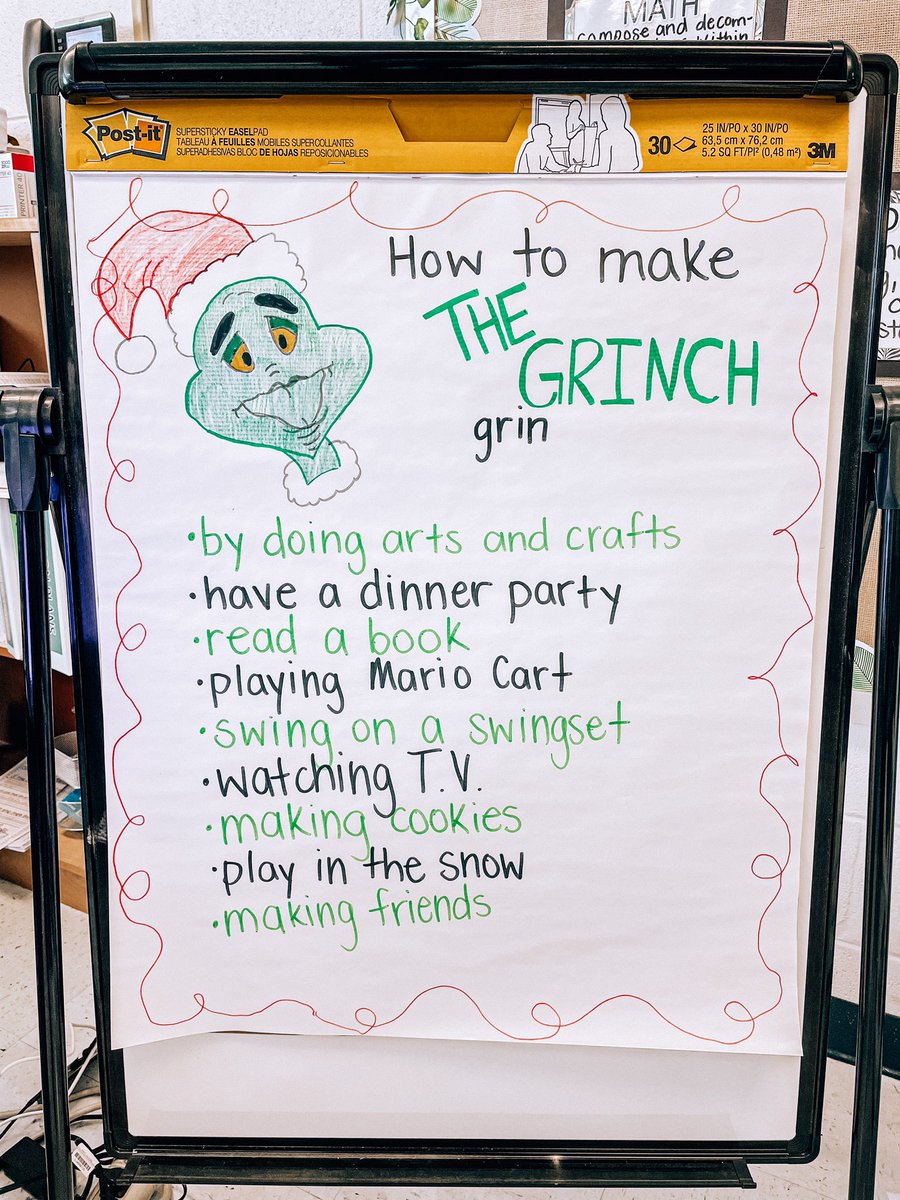 MATH
compose and decom-
Post-it
SUPERSTICKY EASELPAD
TABLEAU À FEUILLES MOBILES SUPERCOLLANTES
SUPERADHESIVAS BLOC DE HOJAS REPOSICIONABLES
30
25 IN/PO x 30 IN/PO
63,5 cm x 76,2 cm
5.2 SQ FT/PI² (0,48 m²)
3M
How to make
THE
GRINCH
grin
•by doing arts and crafts
•have a dinner party
•read a book
•playing Mario Cart
•swing on a swingset
•watching T.V.
•making cookies
•play in the snow
•making friends